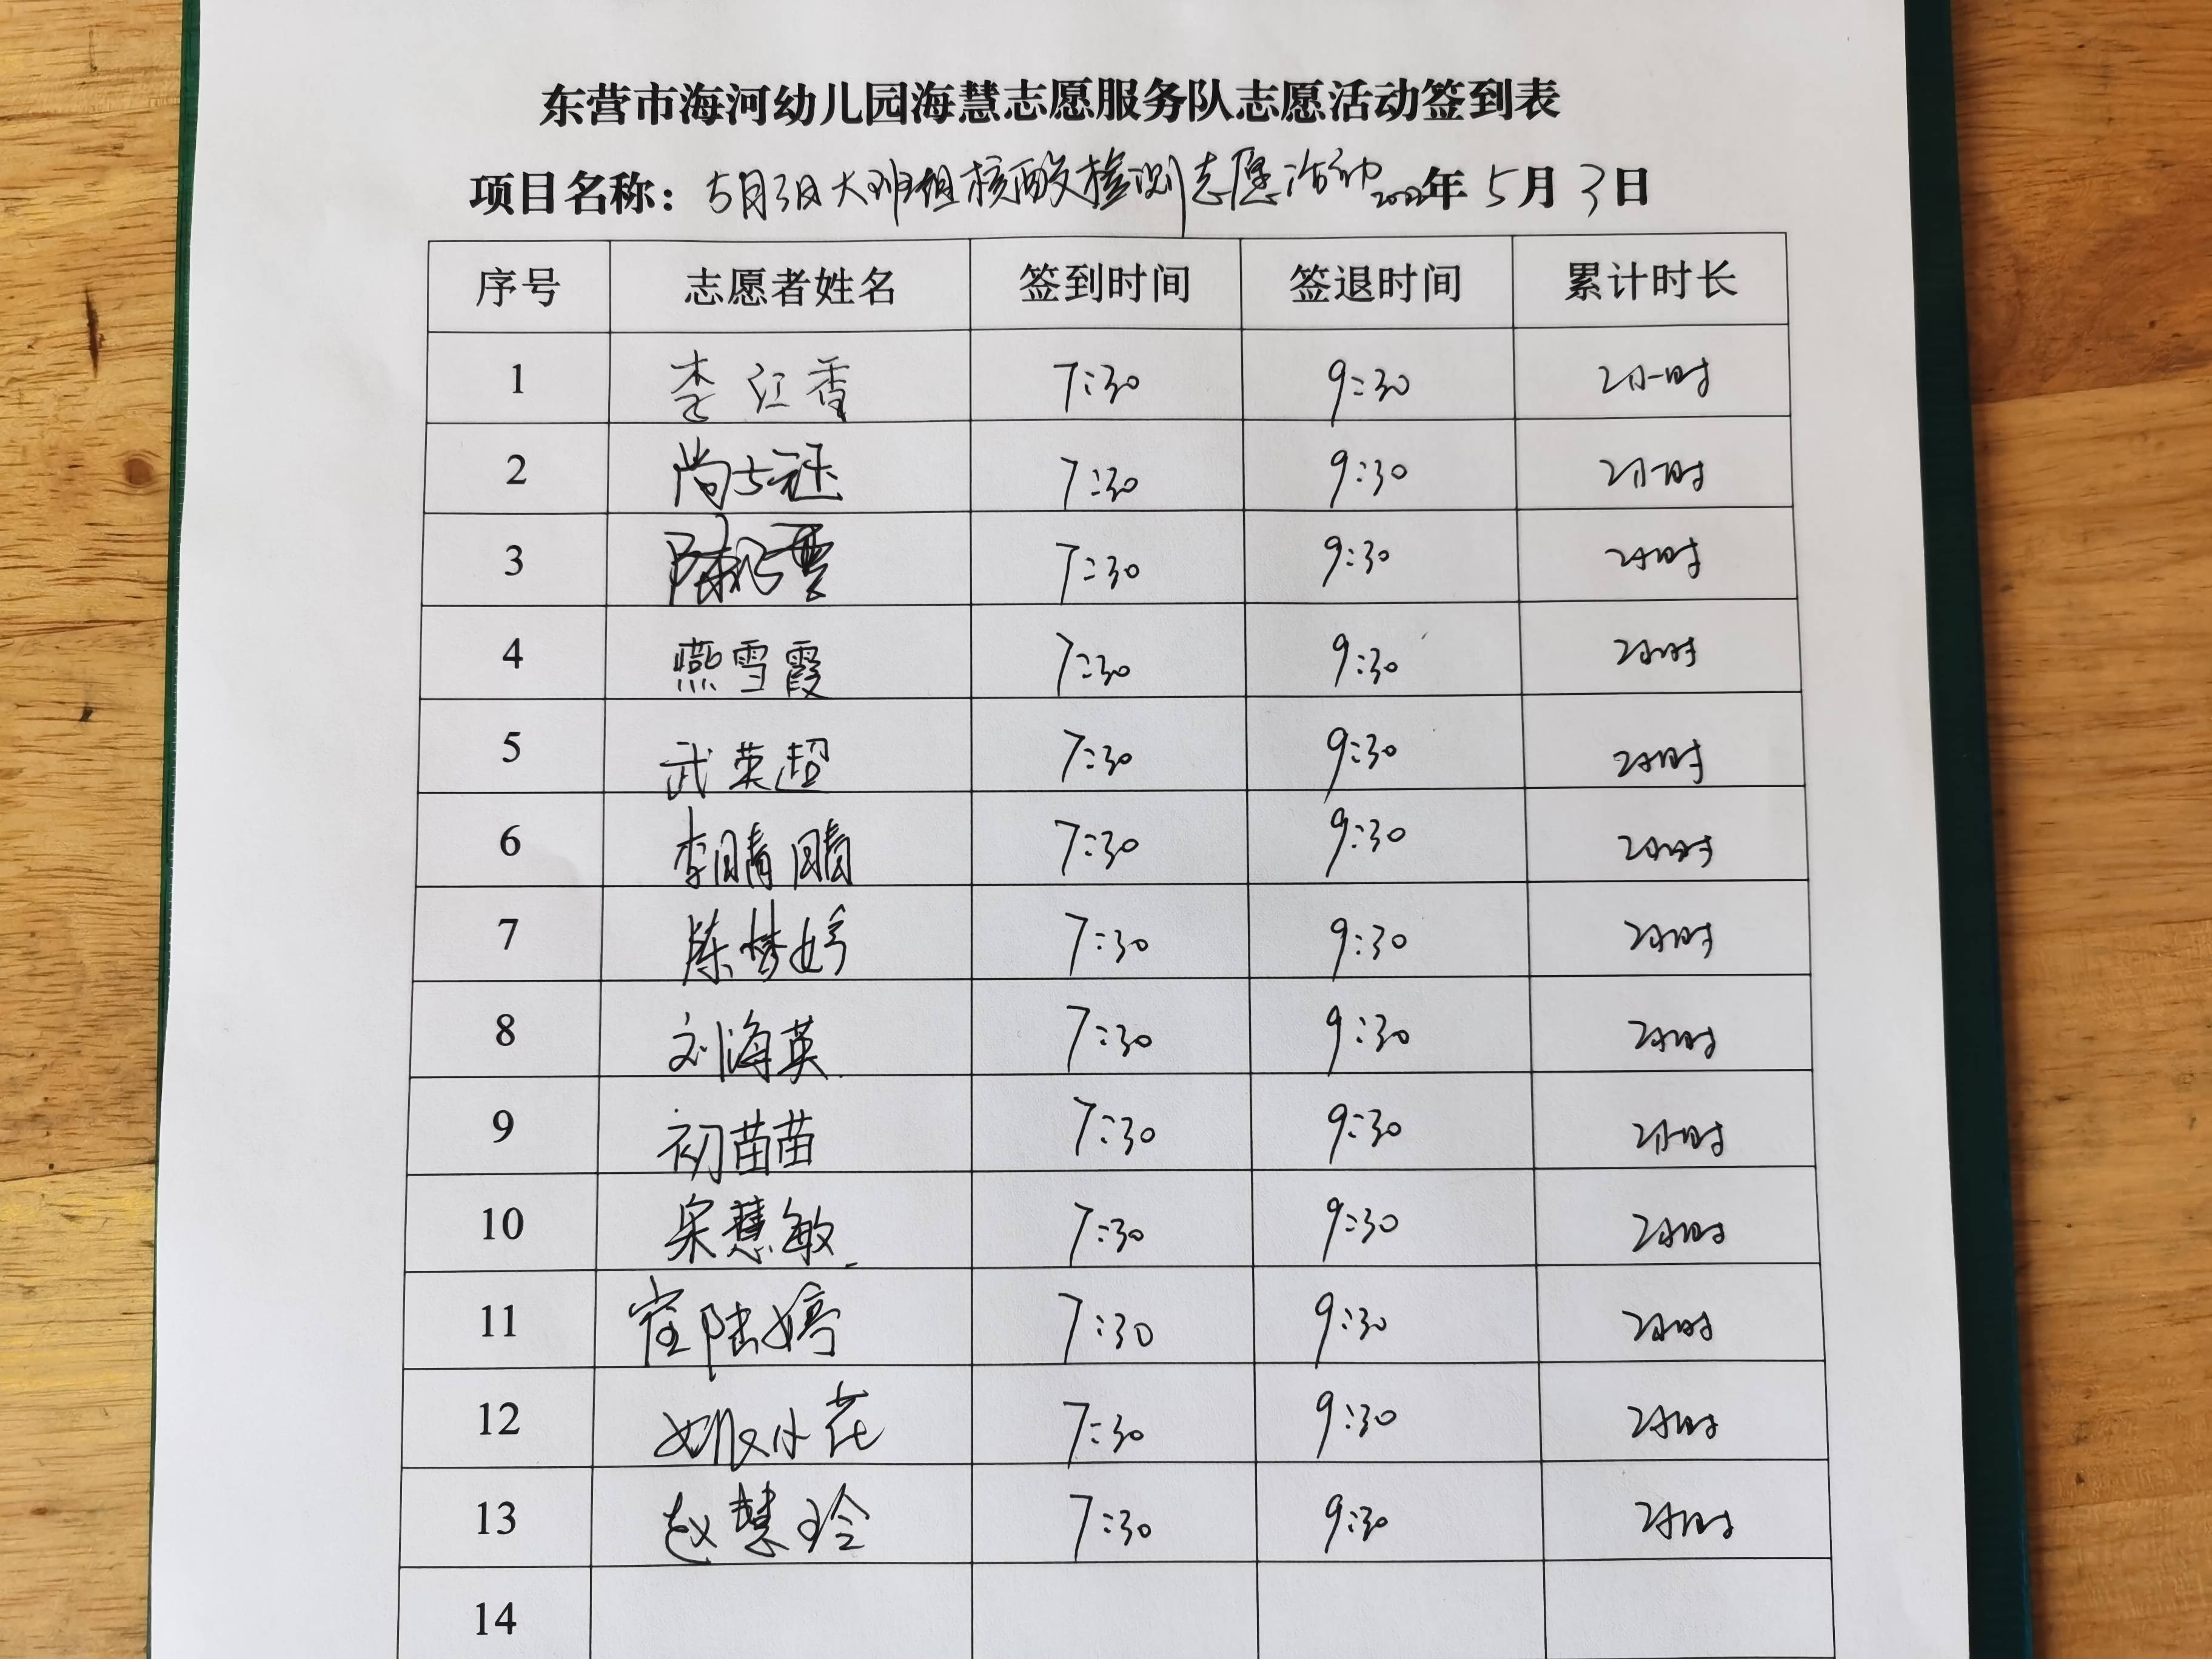 东营市海河幼儿园海慧志愿服务队志愿活动签到表
项目名称：5月3日大班组核酸检测志愿活动 2022年 5月 3日
序号 志愿者姓名 签到时间 签退时间 累计时长
1 李江香 7:30 9:30 2小时
2 尚 7:30 9:30 2小时
3 陈 7:30 9:30 2小时
4 燕雪霞 7:30 9:30 2小时
5 武荣超 7:30 9:30 2小时
6 李晴晴 7:30 9:30 2小时
7 陈梦婷 7:30 9:30 2小时
8 刘海英 7:30 9:30 2小时
9 初苗苗 7:30 9:30 2小时
10 宋慧敏 7:30 9:30 2小时
11 崔陆婷 7:30 9:30 2小时
12 姚小花 7:30 9:30 2小时
13 赵慧玲 7:30 9:30 2小时
14